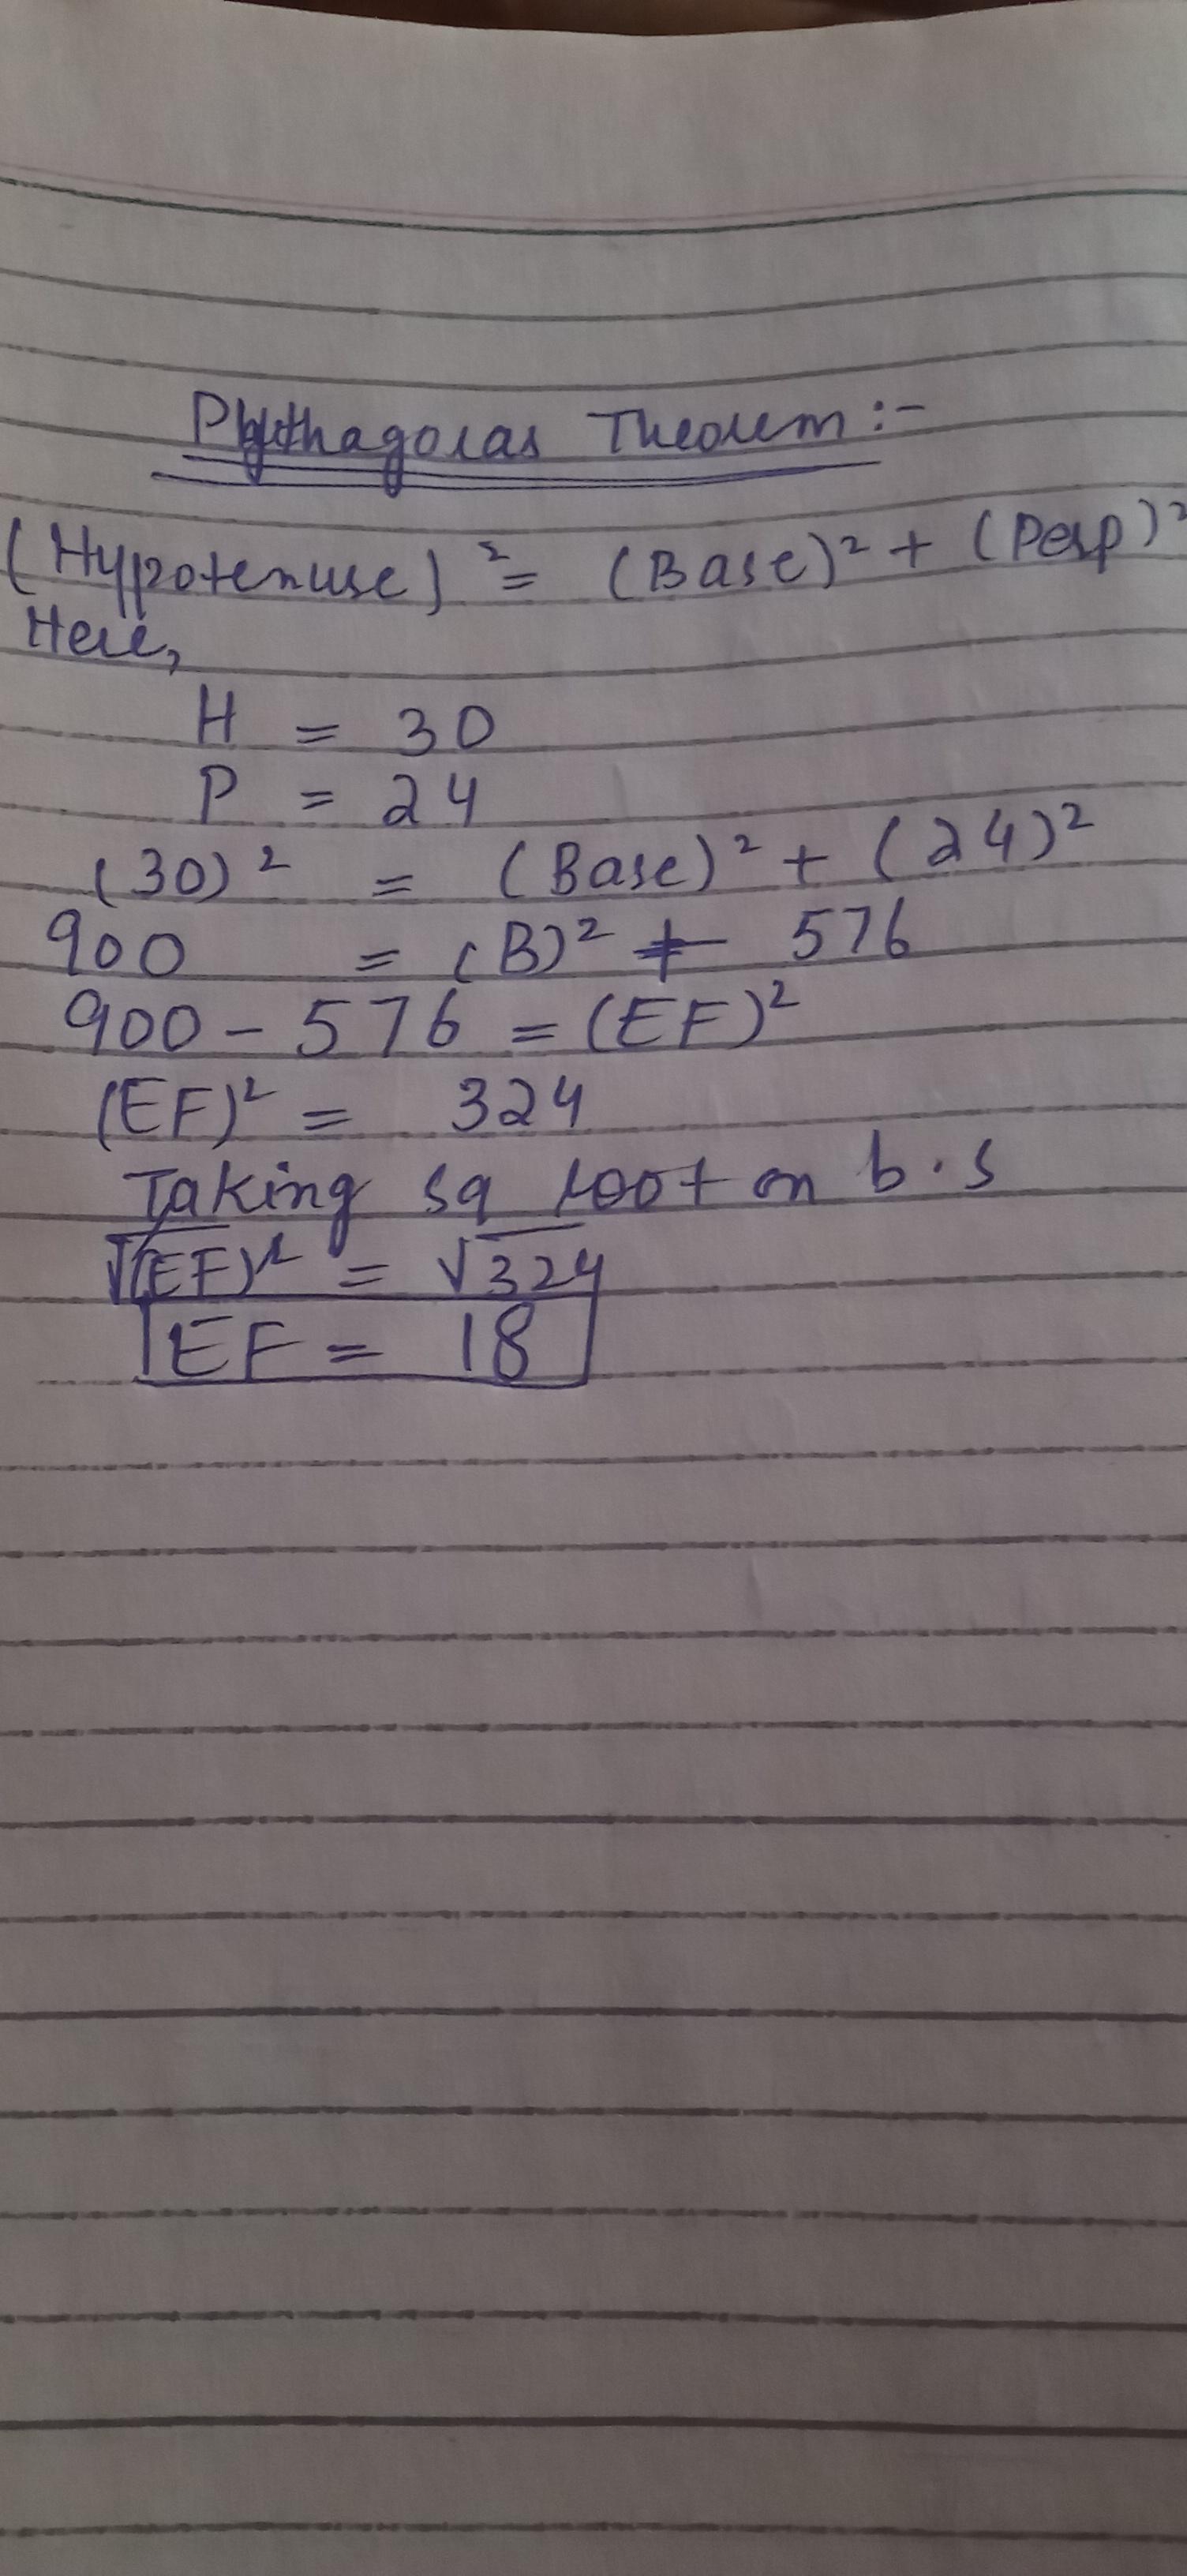 Phythagoras Theorem :-
(Hypotenuse)² = (Base)² + (Perp)²
Here,
H = 30
P = 24
(30)² = (Base)² + (24)²
900 = (B)² + 576
900 - 576 = (EF)²
(EF)² = 324
Taking sq root on b.s
√(EF)² = √324
EF = 18